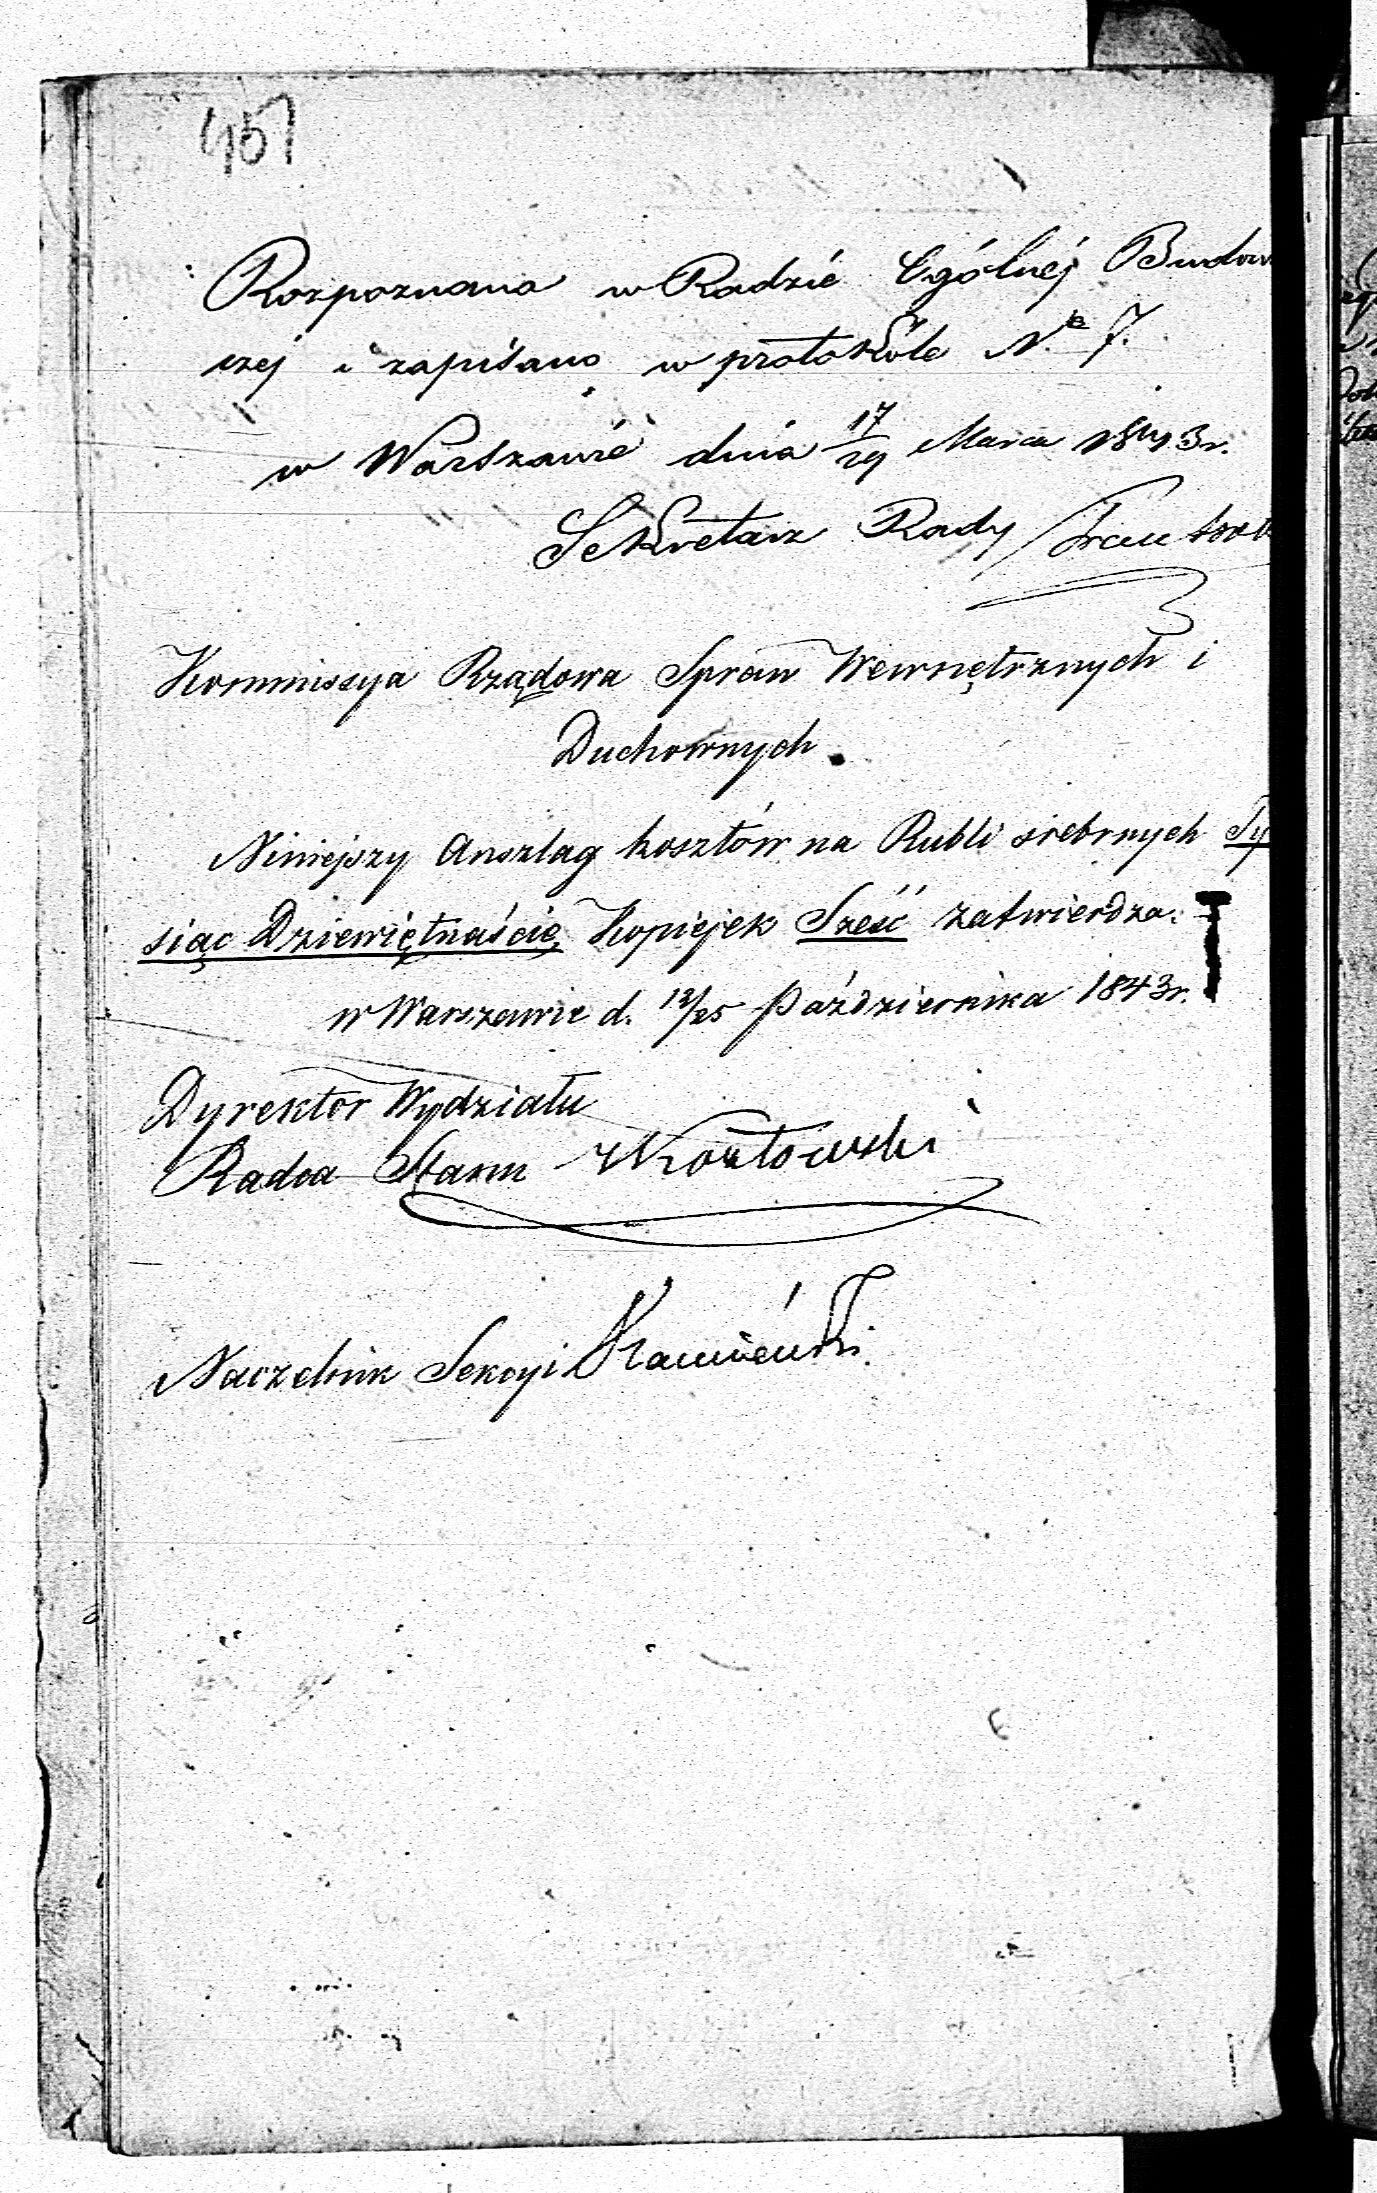 457
Rozpoznano w Radzie Ogólnéj Budow
czej i zapisano w protokóle No 7.
w Warszawie dnia 17/29 Marca 1843 r.
Sekretarz Rady
Kommissya Rządowa Spraw Wewnętrznych i
Duchownych.
Niniejszy Anszlag kosztów na Rubli srebrnych Ty
siąc Dziewiętnaście, Kopiejek Sześć zatwierdza.
w Warszawie d. 13/25 Października 1843 r.
Dyrektor Wydziału
Radca Stanu Kozłowski
Naczelnik Sekcyi Kamieński.